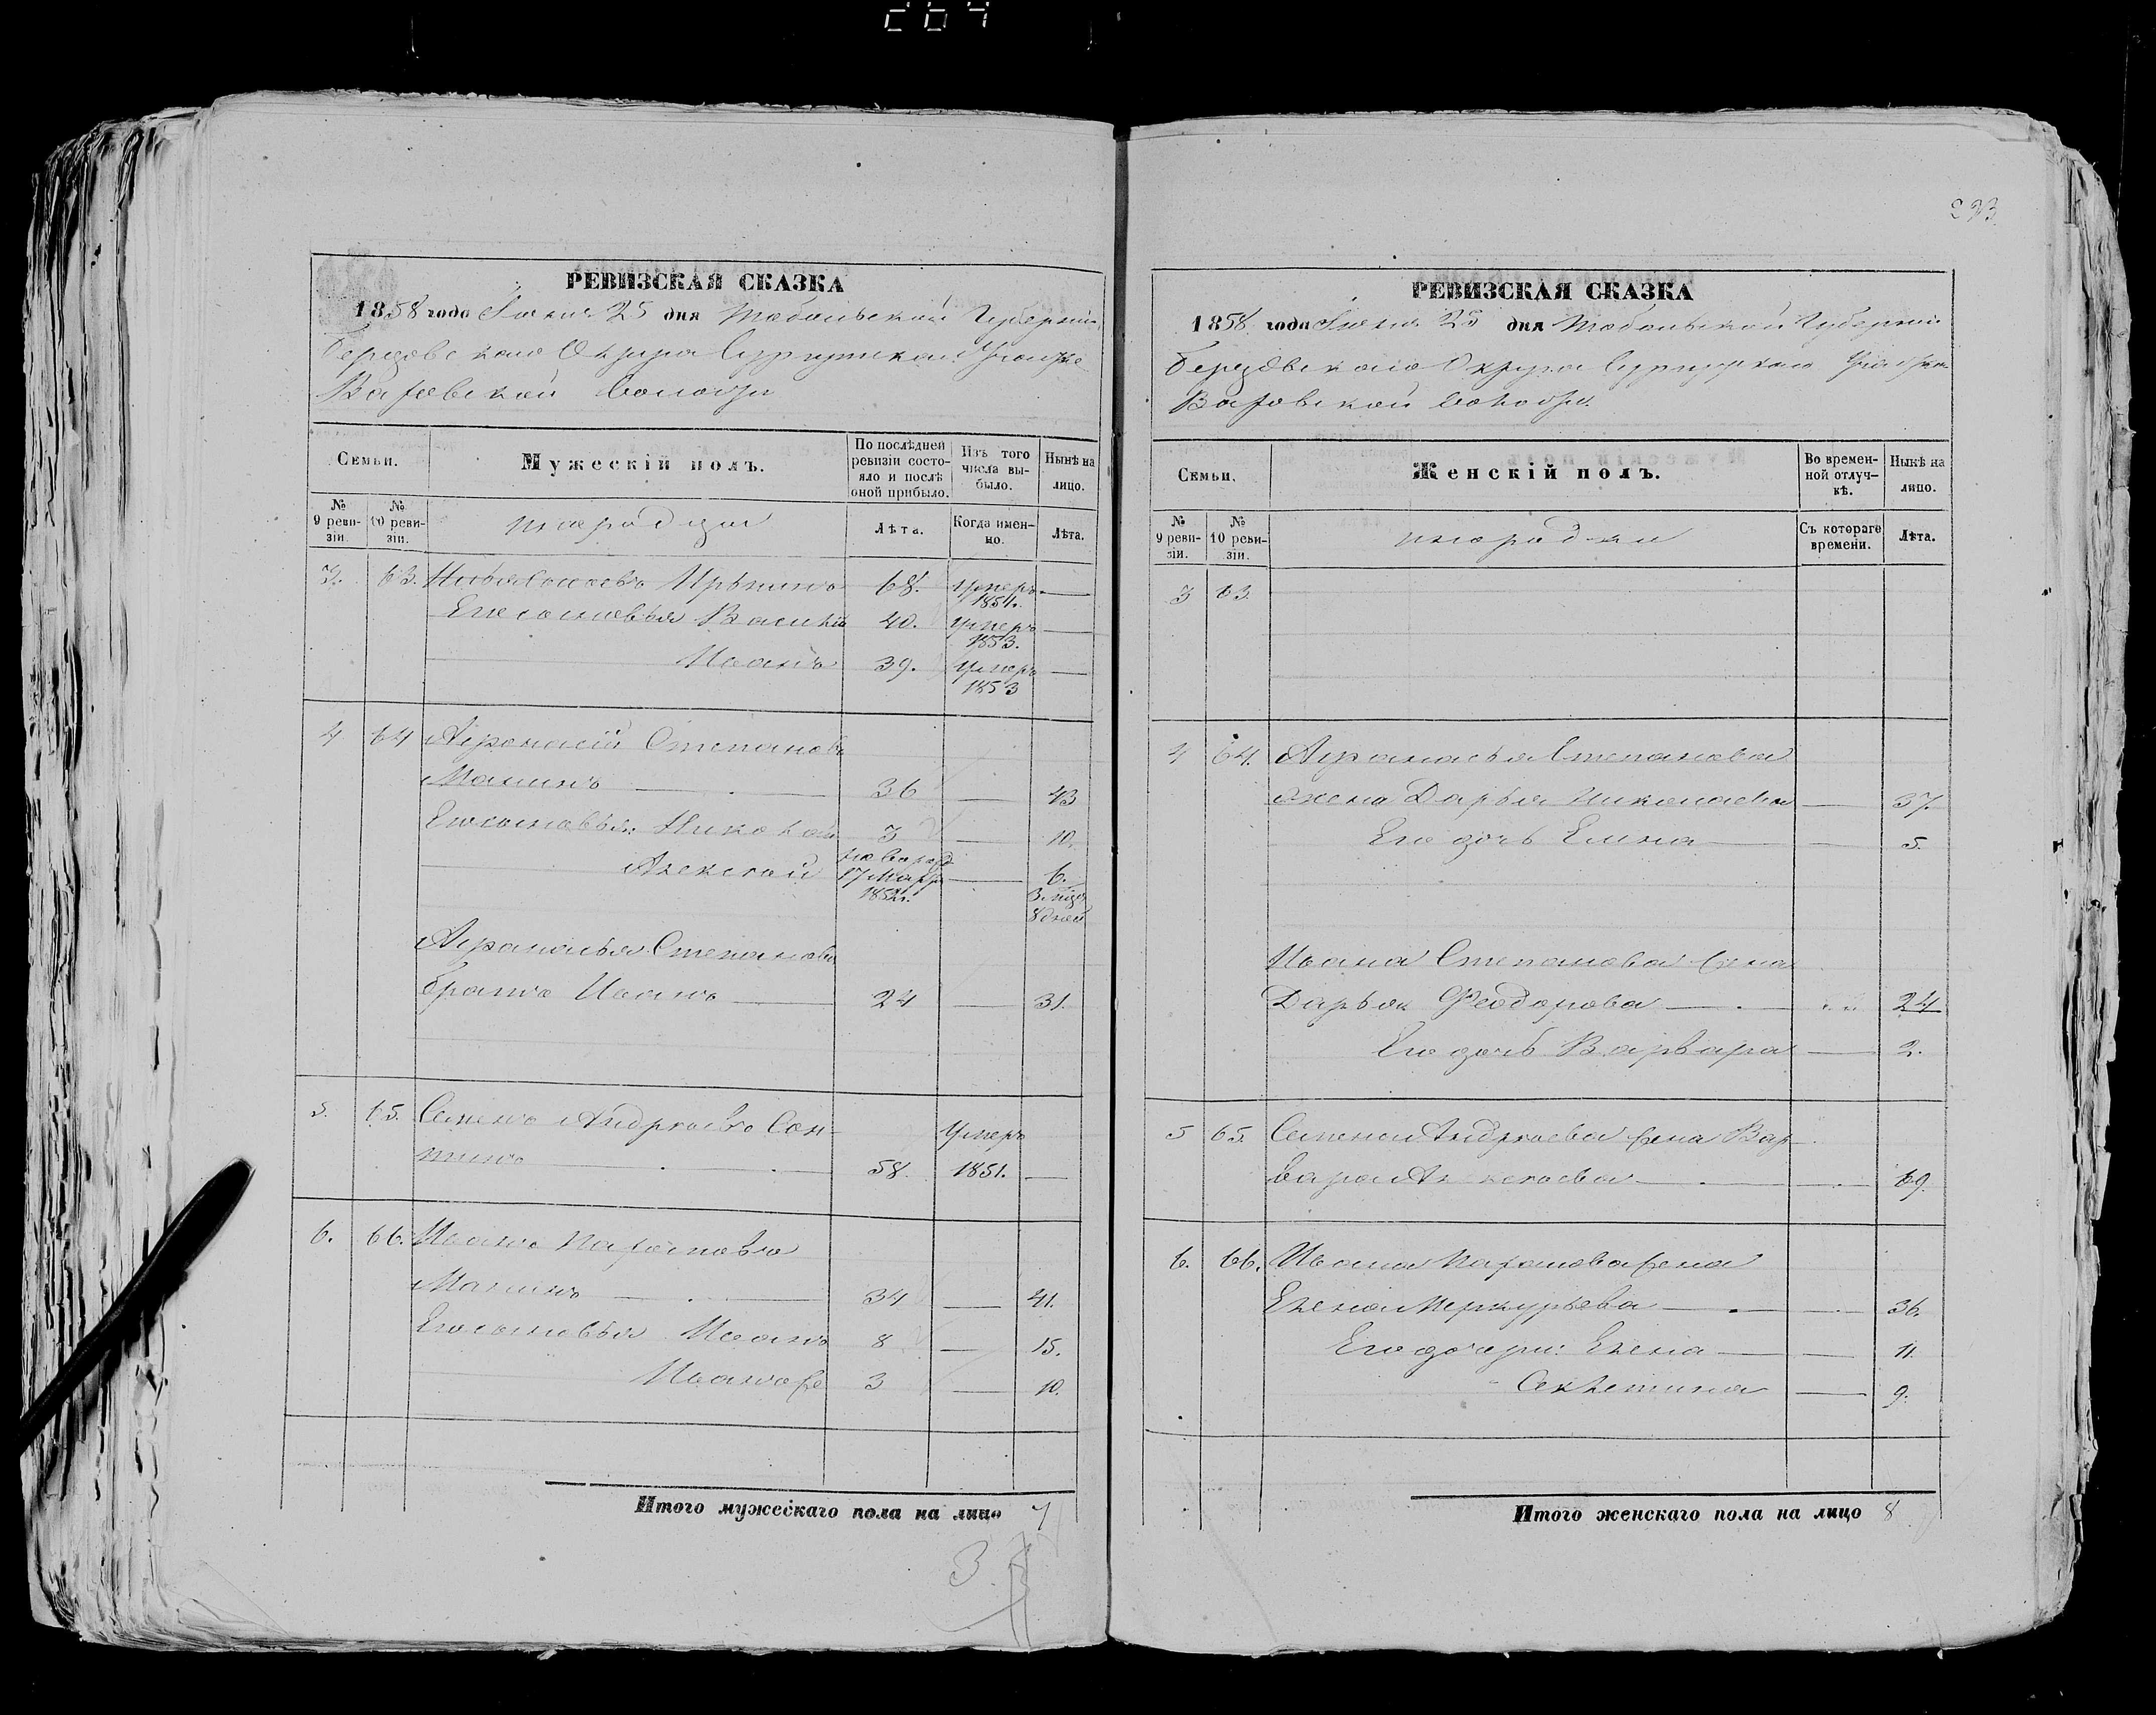 233
РЕВИЗСКАЯ СКАЗКА
1858 года Іюня 25 дня Тобольской Губерніи
Березовскаго Округа Сургутскаго Участка
Ваховской Волости
Семьи.
Мужескій полъ.
По послѣдней ревизіи состояло и послѣ оной прибыло.
Изъ того числа выбыло.
Нынѣ на лицо.
№ 9 ревизіи.
№ 10 ревизіи.
инородцы
Лѣта.
Когда именно.
Лѣта.
3. 63. 68. умеръ 1851.
Его сыновья Василій 40. умеръ 1853.
Иванъ 39. умеръ 1853
4 64 Афонасій Степановъ
36 43
Его сыновья: Николай 3 10.
Алексѣй 17 Марта 1852г. 6. 3 мѣс. 8 дней
Афанасья Степанова
братъ Иванъ 24 31.
5. 65. Семенъ Андреевъ
58. Умеръ 1851.
6. 66. Иванъ
34 41.
Его сыновья Иванъ 8 15.
Иванъ же 3 10.
Итого мужескаго пола на лицо 7
РЕВИЗСКАЯ СКАЗКА
1858 года Іюня 25 дня Тобольской Губерніи
Березовскаго Округа Сургутскаго Участка
Ваховской Волости.
Семьи.
Женскій полъ.
Во временной отлучкѣ.
Нынѣ на лицо.
№ 9 ревизіи.
№ 10 ревизіи.
инородки
Съ котораго времени.
Лѣта.
3 63.
4 64. Афанасья Степанова
жена Дарья Николаева 37.
Его дочь Елена 5.
Ивана Степанова жена
Дарья Феодорова 24
Его дочь Варвара 2.
5 65. Семена Андреева жена Вар-
вара Алексеева 69.
6. 66. Ивана жена
Елена Меркурьева 36.
Его дочери: Елена 11.
9.
Итого женскаго пола на лицо 8